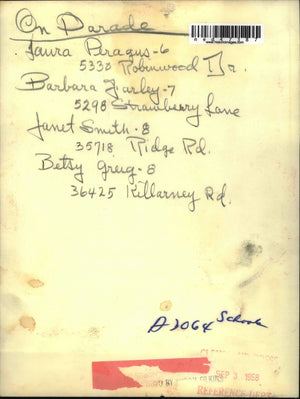 On Parade
Laura Peragus-6
5338 Robinwood Dr.
Barbara Farley-7
5298 Strawberry Lane
Janet Smith-8
35718 Ridge Rd.
Betsy Greig-8
36425 Killarney Rd.
A2064 Schools
SEP 3 1958
REFERENCE DEPT.